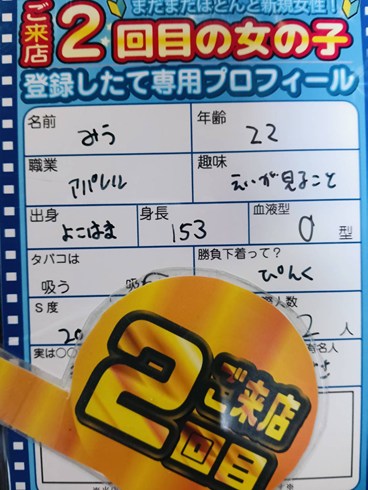 まだまだほとんど新規女性!
ご来店2回目の女の子
登録したて専用プロフィール
名前 みう
年齢 22
職業 アパレル
趣味 えいが見ること
出身 よこはま
身長 153
血液型 O 型
タバコは 吸う
勝負下着って? ぴんく
S度 20
人数 2 人
実は〇〇
名人
ご来店
2回目